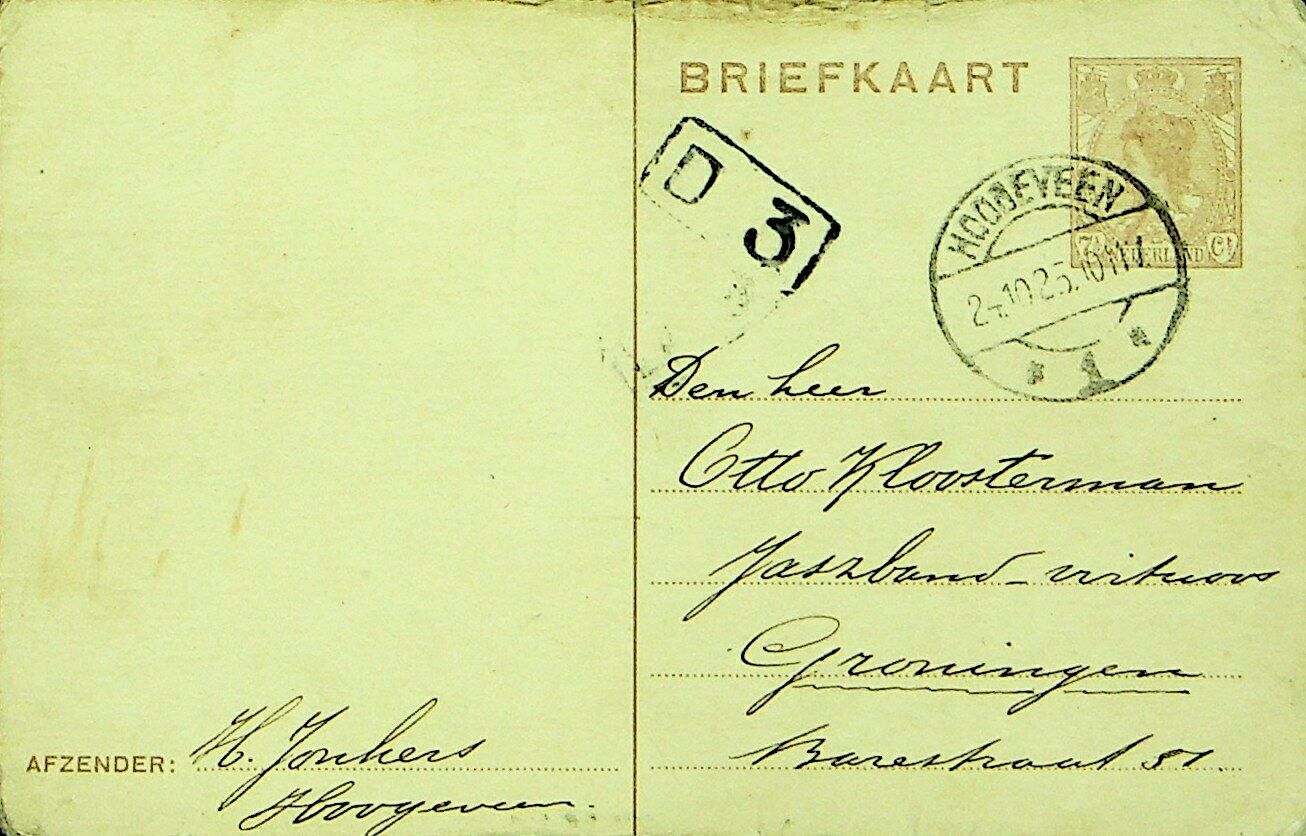 BRIEFKAART
D 3
7½ NEDERLAND Ct
HOOGEVEEN
24.10.25.10
1
Den heer
Otto Kloosterman
Jazzband-virtuoos
Groningen
Barestraat 51.
AFZENDER: H. Jonkers
Hoogeveen.